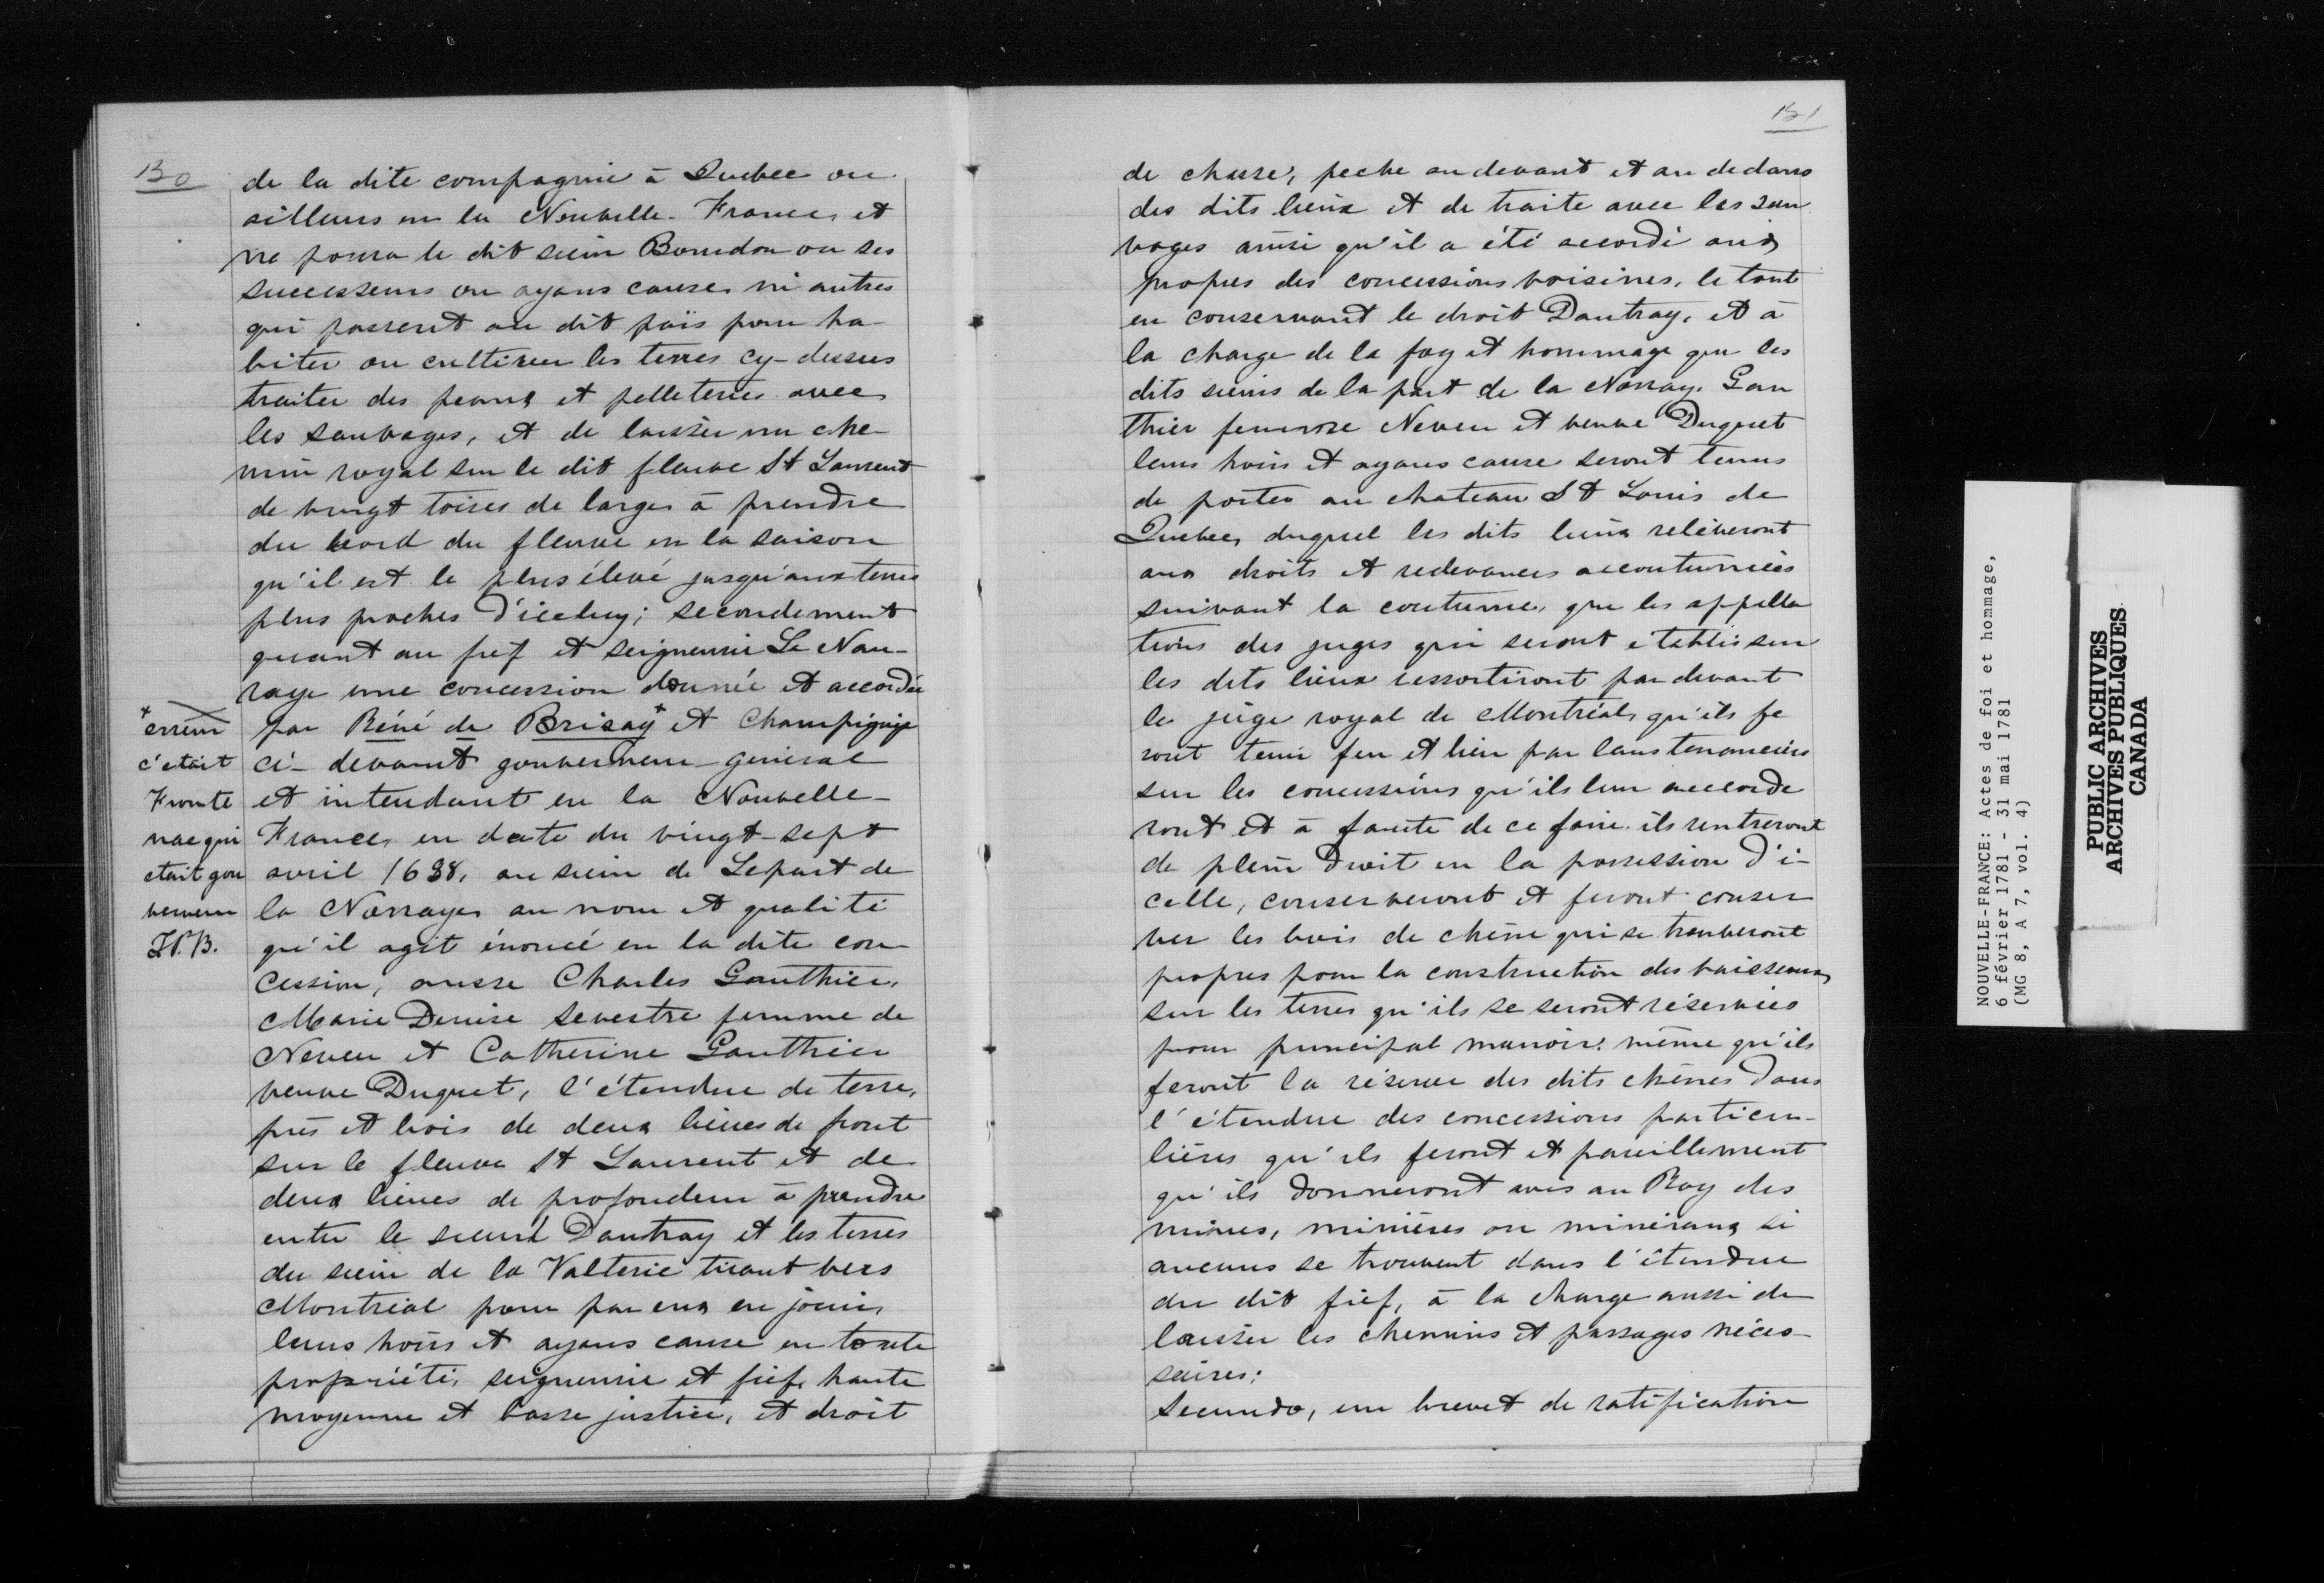 130
de la dite compagnie à Quebec ou
ailleurs en la Nouvelle-France, et
ne poura le dit sieur Bourdon ou ses
successeurs ou ayans cause, ni autres
qui passeront au dit païs pour ha-
biter ou cultiver les terres cy-dessus
traiter des peaux et pelleteries avec
les sauvages, et de laisser un che-
min royal sur le dit fleuve St Laurent
de vingt toises de large, à prendre
du bord du fleuve en la saison
qu'il est le plus élevé jusqu'aux terres
plus proches d'iceluy; secondement
quant au fief et seigneurie La Nau-
raye une concession donnée et accordée
par Réné de Brisay+ et Champigny
ci-devant gouverneur-général
et intendant en la Nouvelle-
France, en date du vingt-sept
avril 1688, au sieur de Lepart de
la Noraye, au nom et qualité
qu'il agit énoncé en la dite con
cession, ausse Charles Gauthier,
Marie Denise Sevestre femme de
Neveu et Catherine Gauthier
veuve Duquet, l'étendue de terre,
prés et bois de deux lieues de front
sur le fleuve St Laurent et de
deux lieues de profondeur à prendre
entre le sieur Dautray et les terres
du sieur de la Valterie tirant vers
Montréal pour par eux en jouir,
leurs hoirs et ayans cause en toute
propriété, seigneurie et fief, haute
moyenne et basse justice, et droit
+ erreur
c'était
Fronte
nac qui
etait gou
verneur
131
de chasse, peche au devant et au dedans
des dits lieux et de traite avec les sau
vages ainsi qu'il a été accordé aux
propres des concessions voisines, le tout
en conservant le droit Dautray, et à
la charge de la foy et hommage que les
dits sieurs de la part de la Noray, Gau
thier femme Neveu et veuve Duquet
leurs hoirs et ayans cause seront tenus
de porter au chateau St Louis de
Quebec, duquel les dits lieux relèveront
aux droits et redevances accoutumées
suivant la coutume, que les appella
tions des juges qui seront établis sur
les dits lieux ressortiront par devant
le juge royal de Montréal, qu'ils fe
ront tenir feu et lieu par leurs tenanciers
sur les concessions qu'ils leur accorde
ront et à faute de ce faire ils rentreront
de plein droit en la possession d'i-
celle, conserveront et feront conser
ver les bois de chêne qui se trouveront
propres pour la construction des vaisseaux
sur les terres qu'ils se seront réservées
pour principal manoir, même qu'ils
feront la réserve des dits chênes dans
l'étendue des concessions particu-
lières qu'ils feront et pareillement
qu'ils donneront avis au Roy des
mines, minières ou minéraux si
aucuns se trouvent dans l'étendue
du dit fief, à la charge aussi de
laisser les chemins et passages néces-
saires;
Secundo, un brevet de ratification
NOUVELLE-FRANCE: Actes de foi et hommage,
6 février 1781 - 31 mai 1781
(MG 8, A 7, vol. 4)
PUBLIC ARCHIVES
ARCHIVES PUBLIQUES
CANADA